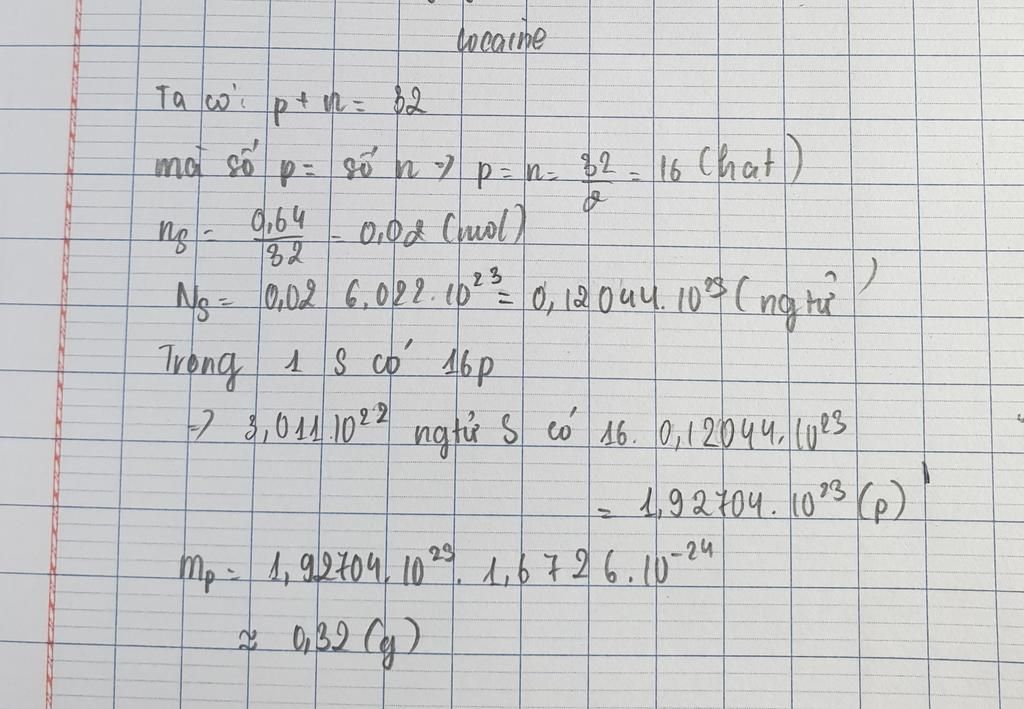 cocaine
Ta có: p + n = 32
mà số p = số n => p = n = 32/2 = 16 (hat)
nS = 0,64/32 = 0,02 (mol)
NS = 0,02 6,022.10²³ = 0,12044.10²³ (ng tử)
Trong 1 S có 16p
=> 3,011.10²² ng tử S có 16. 0,12044.10²³
= 1,92704.10²³ (p)
mp = 1,92704.10²³. 1,6726.10⁻²⁴
≈ 0,32 (g)